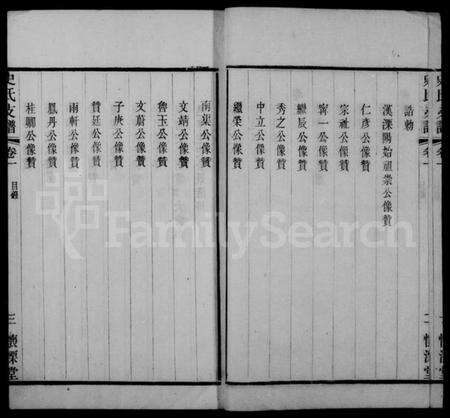 誥勅
漢溧陽始祖崇公像贊
仁彥公像贊
宗祉公像贊
寧一公像贊
繼辰公像贊
秀之公像贊
中立公像贊
繼渠公像贊
二
南渠公像贊
文靖公像贊
魯玉公像贊
文蔚公像贊
子庚公像贊
贊廷公像贊
雨軒公像贊
鳳丹公像贊
桂卿公像贊
史氏支譜 卷一 目錄 三 懷深堂
FamilySearch